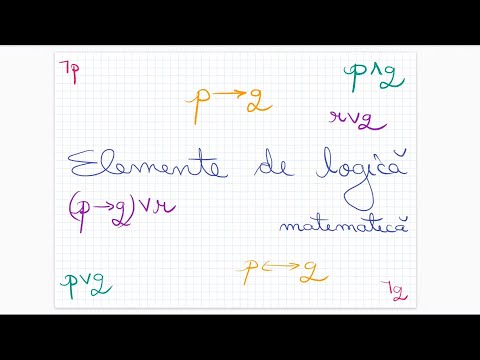 ¬p
p∧q
p→q
r∨q
Elemente de logică
(p→q)∨r
matematică
p↔q
p∨q
¬q